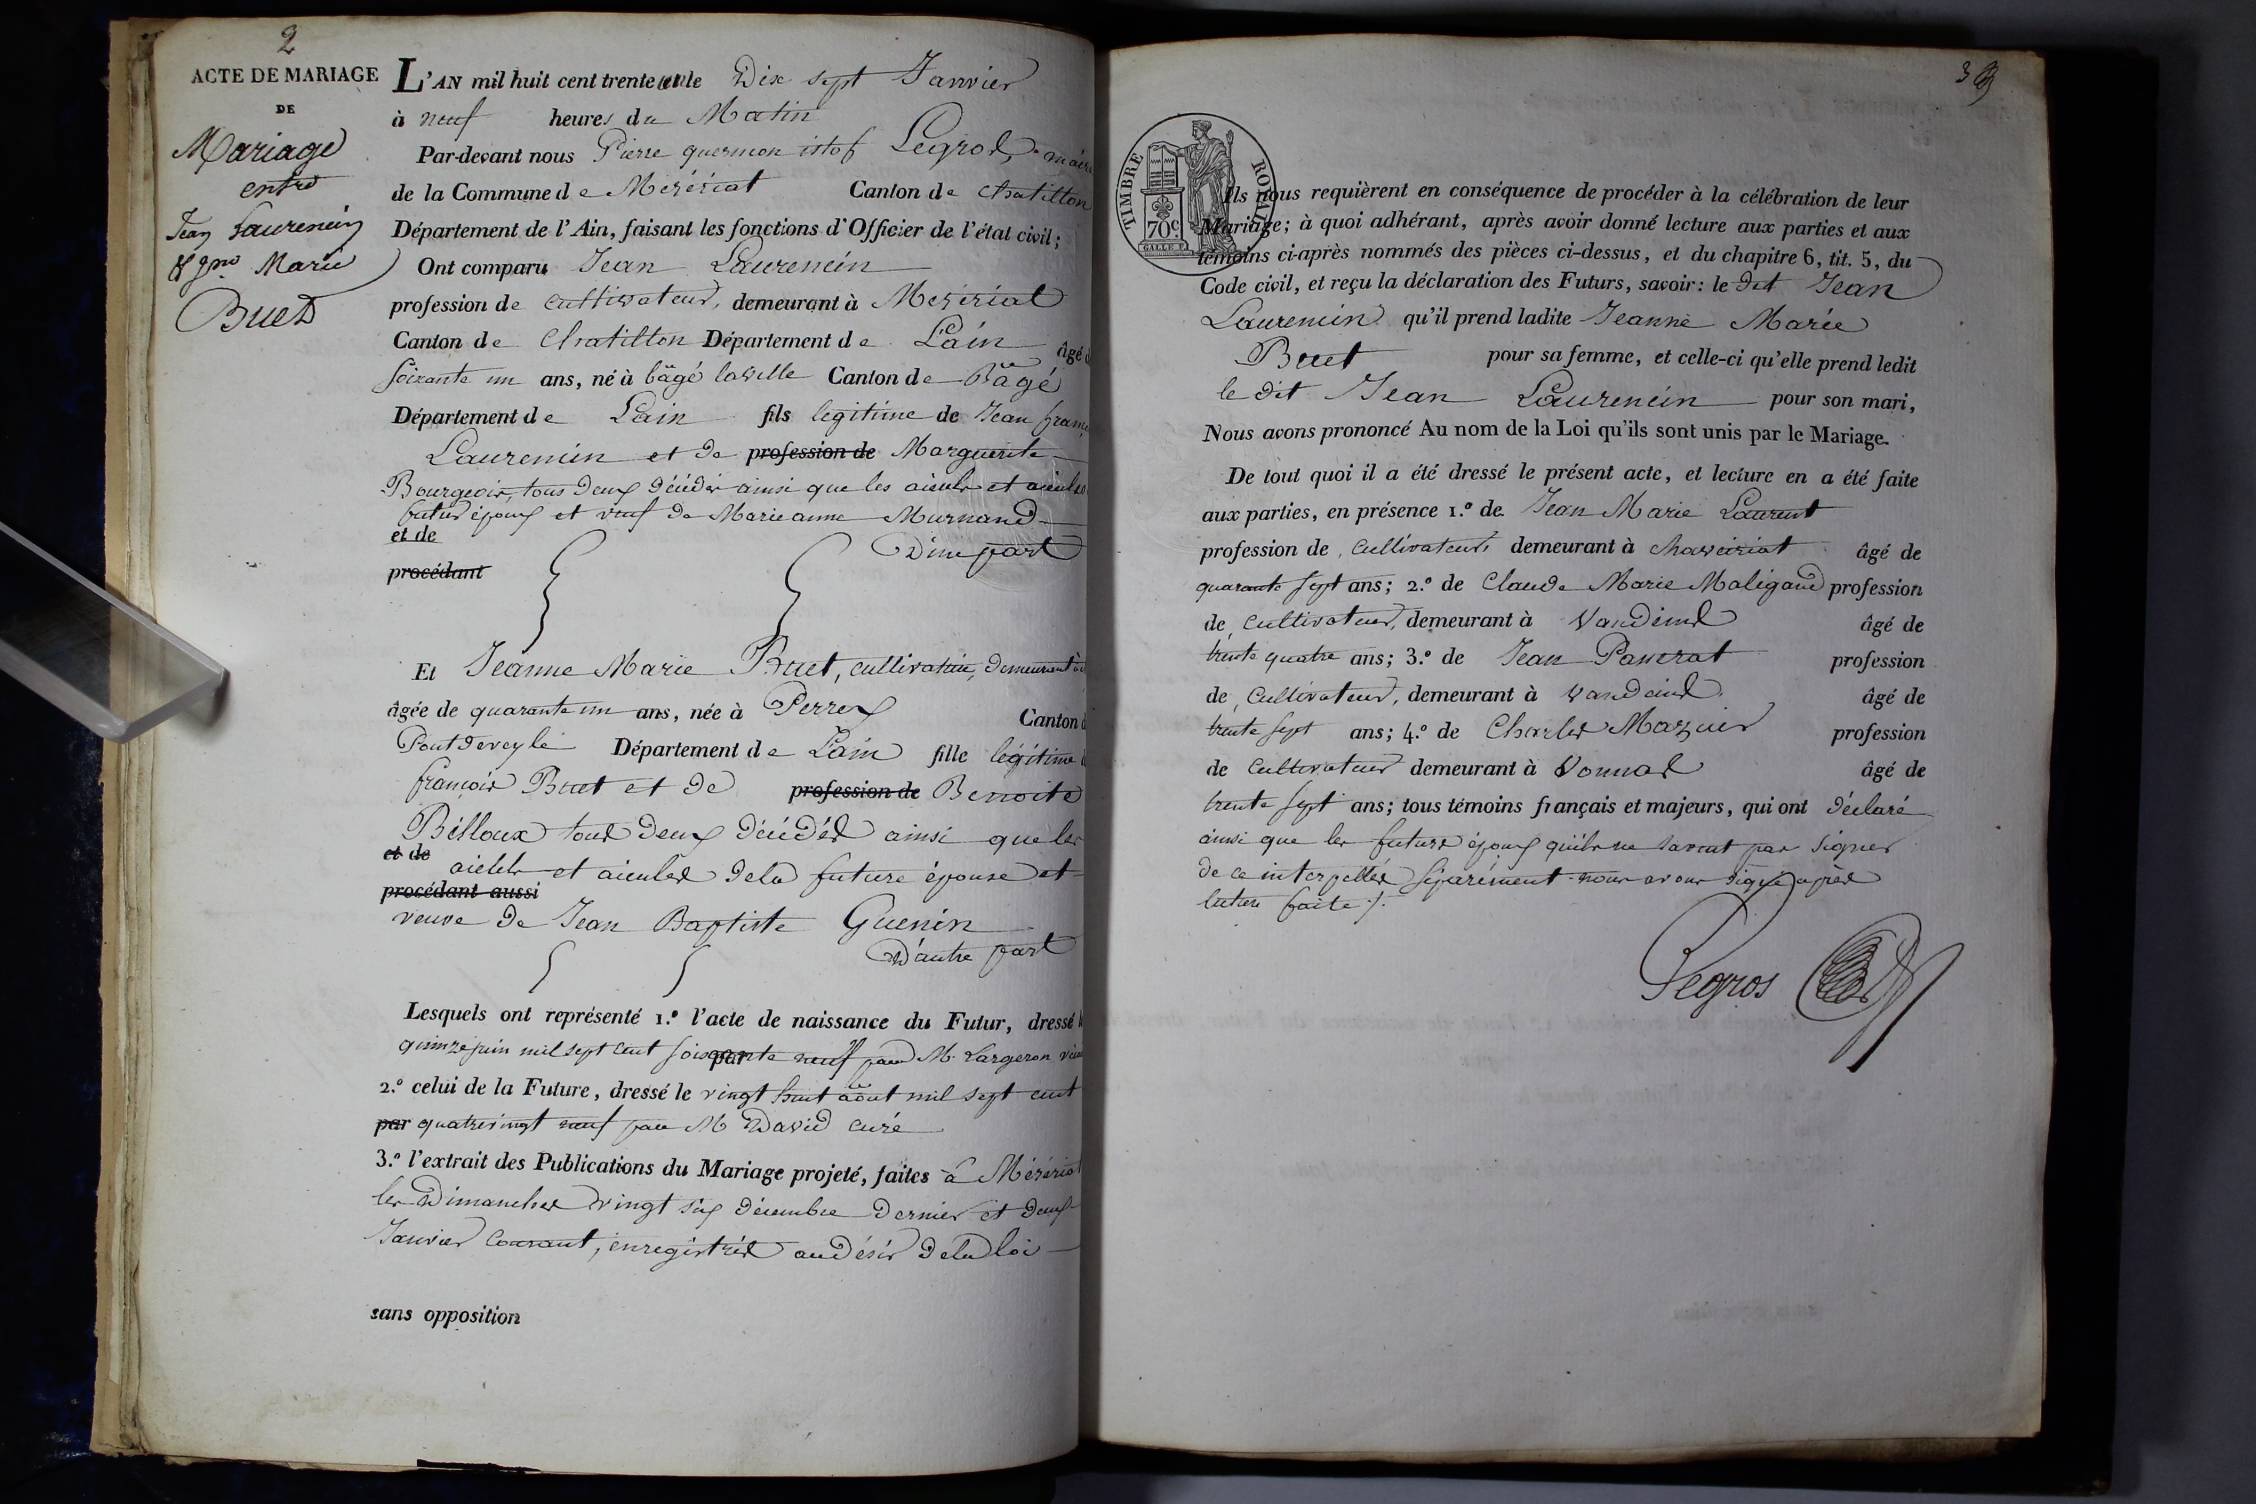 2
ACTE DE MARIAGE
DE
Mariage
entre
Jean Laurencin
& jne Marie
Buet
L'AN mil huit cent trente un le Dix sept Janvier
à neuf heures du Matin
Par-devant nous Pierre Legros, maire
de la Commune de Mézériat Canton de chatillon
Département de l'Ain, faisant les fonctions d'Officier de l'état civil;
Ont comparu Jean Laurencin
profession de cultivateur, demeurant à Mezériat
Canton de Chatillon Département de L'ain âgé d
soixante un ans, né à bâgé laville Canton de Bâgé
Département de Lain fils legitime de Jean franç
Laurencin et de profession de Marguerite
Bourgeois, tous deux décédés ainsi que les aieuls et aieules
futur époux et veuf de Marie anne Murnand
et de
D'une part
procédant
Et Jeanne Marie Buet, cultivatrice, demeurant à
âgée de quarante un ans, née à Perrex Canton d
Pontdeveyle Département de Lain fille légitime d
françois Buet et de profession de Benoite
Bélloux tous deux décédés ainsi que les
et de
aieuls et aieules dela future épouse et
procédant aussi
veuve de Jean Baptiste Guenin
D'autre part
Lesquels ont représenté 1.º l'acte de naissance du Futur, dressé l
quinze juin mil sept cent soixante neuf par M. Largeron
par
2.º celui de la Future, dressé le vingt huit août mil sept cent
par quatrevingt neuf par M David curé
3.º l'extrait des Publications du Mariage projeté, faites à Mézériat
les Dimanches vingt six décembre dernier et deux
Janvier courant, enregistrés au désir dela loi
sans opposition
3
TIMBRE ROYAL
70c
GALLE F.
Ils nous requièrent en conséquence de procéder à la célébration de leur
Mariage; à quoi adhérant, après avoir donné lecture aux parties et aux
témoins ci-après nommés des pièces ci-dessus, et du chapitre 6, tit. 5, du
Code civil, et reçu la déclaration des Futurs, savoir: le dit Jean
Laurencin qu'il prend ladite Jeanne Marie
Buet pour sa femme, et celle-ci qu'elle prend ledit
le dit Jean Laurencin pour son mari,
Nous avons prononcé Au nom de la Loi qu'ils sont unis par le Mariage.
De tout quoi il a été dressé le présent acte, et lecture en a été faite
aux parties, en présence 1.º de Jean Marie Laurent
profession de cultivateur, demeurant à chaveiriat âgé de
quarante sept ans; 2.º de Claude Marie Maligand profession
de cultivateur, demeurant à Vandeins âgé de
trente quatre ans; 3.º de Jean Pancrat profession
de cultivateur, demeurant à vandeins âgé de
trente sept ans; 4.º de Charles Mazuir profession
de Cultivateur demeurant à Vonnas âgé de
trente sept ans; tous témoins français et majeurs, qui ont déclaré
ainsi que les futurs époux qu'ils ne savent pas signer
de ce interpellés séparément nous avons signé après
lecture faite ./.
Legros